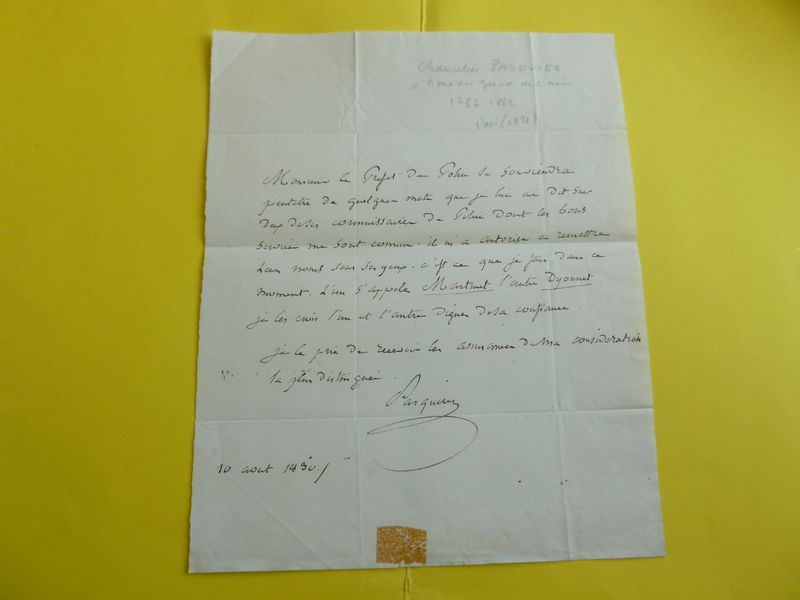 Chancelier PASQUIER
à
1767 1862
Monsieur le Prefet de Police se souviendra
peutetre de quelques mots que je lui ai dit sur
deux de ses commissaires de Police dont les bons
services me sont connus. il m'a autorisé a remettre
leurs noms sous ses yeux. c'est ce que je fais dans ce
moment. L'un s'appele Martinet l'autre Dyonnet.
je les crois l'un et l'autre dignes de sa confiance.
je le prie de recevoir les assurances de ma consideration
la plus distinguée.
Pasquier
10 aout 1830